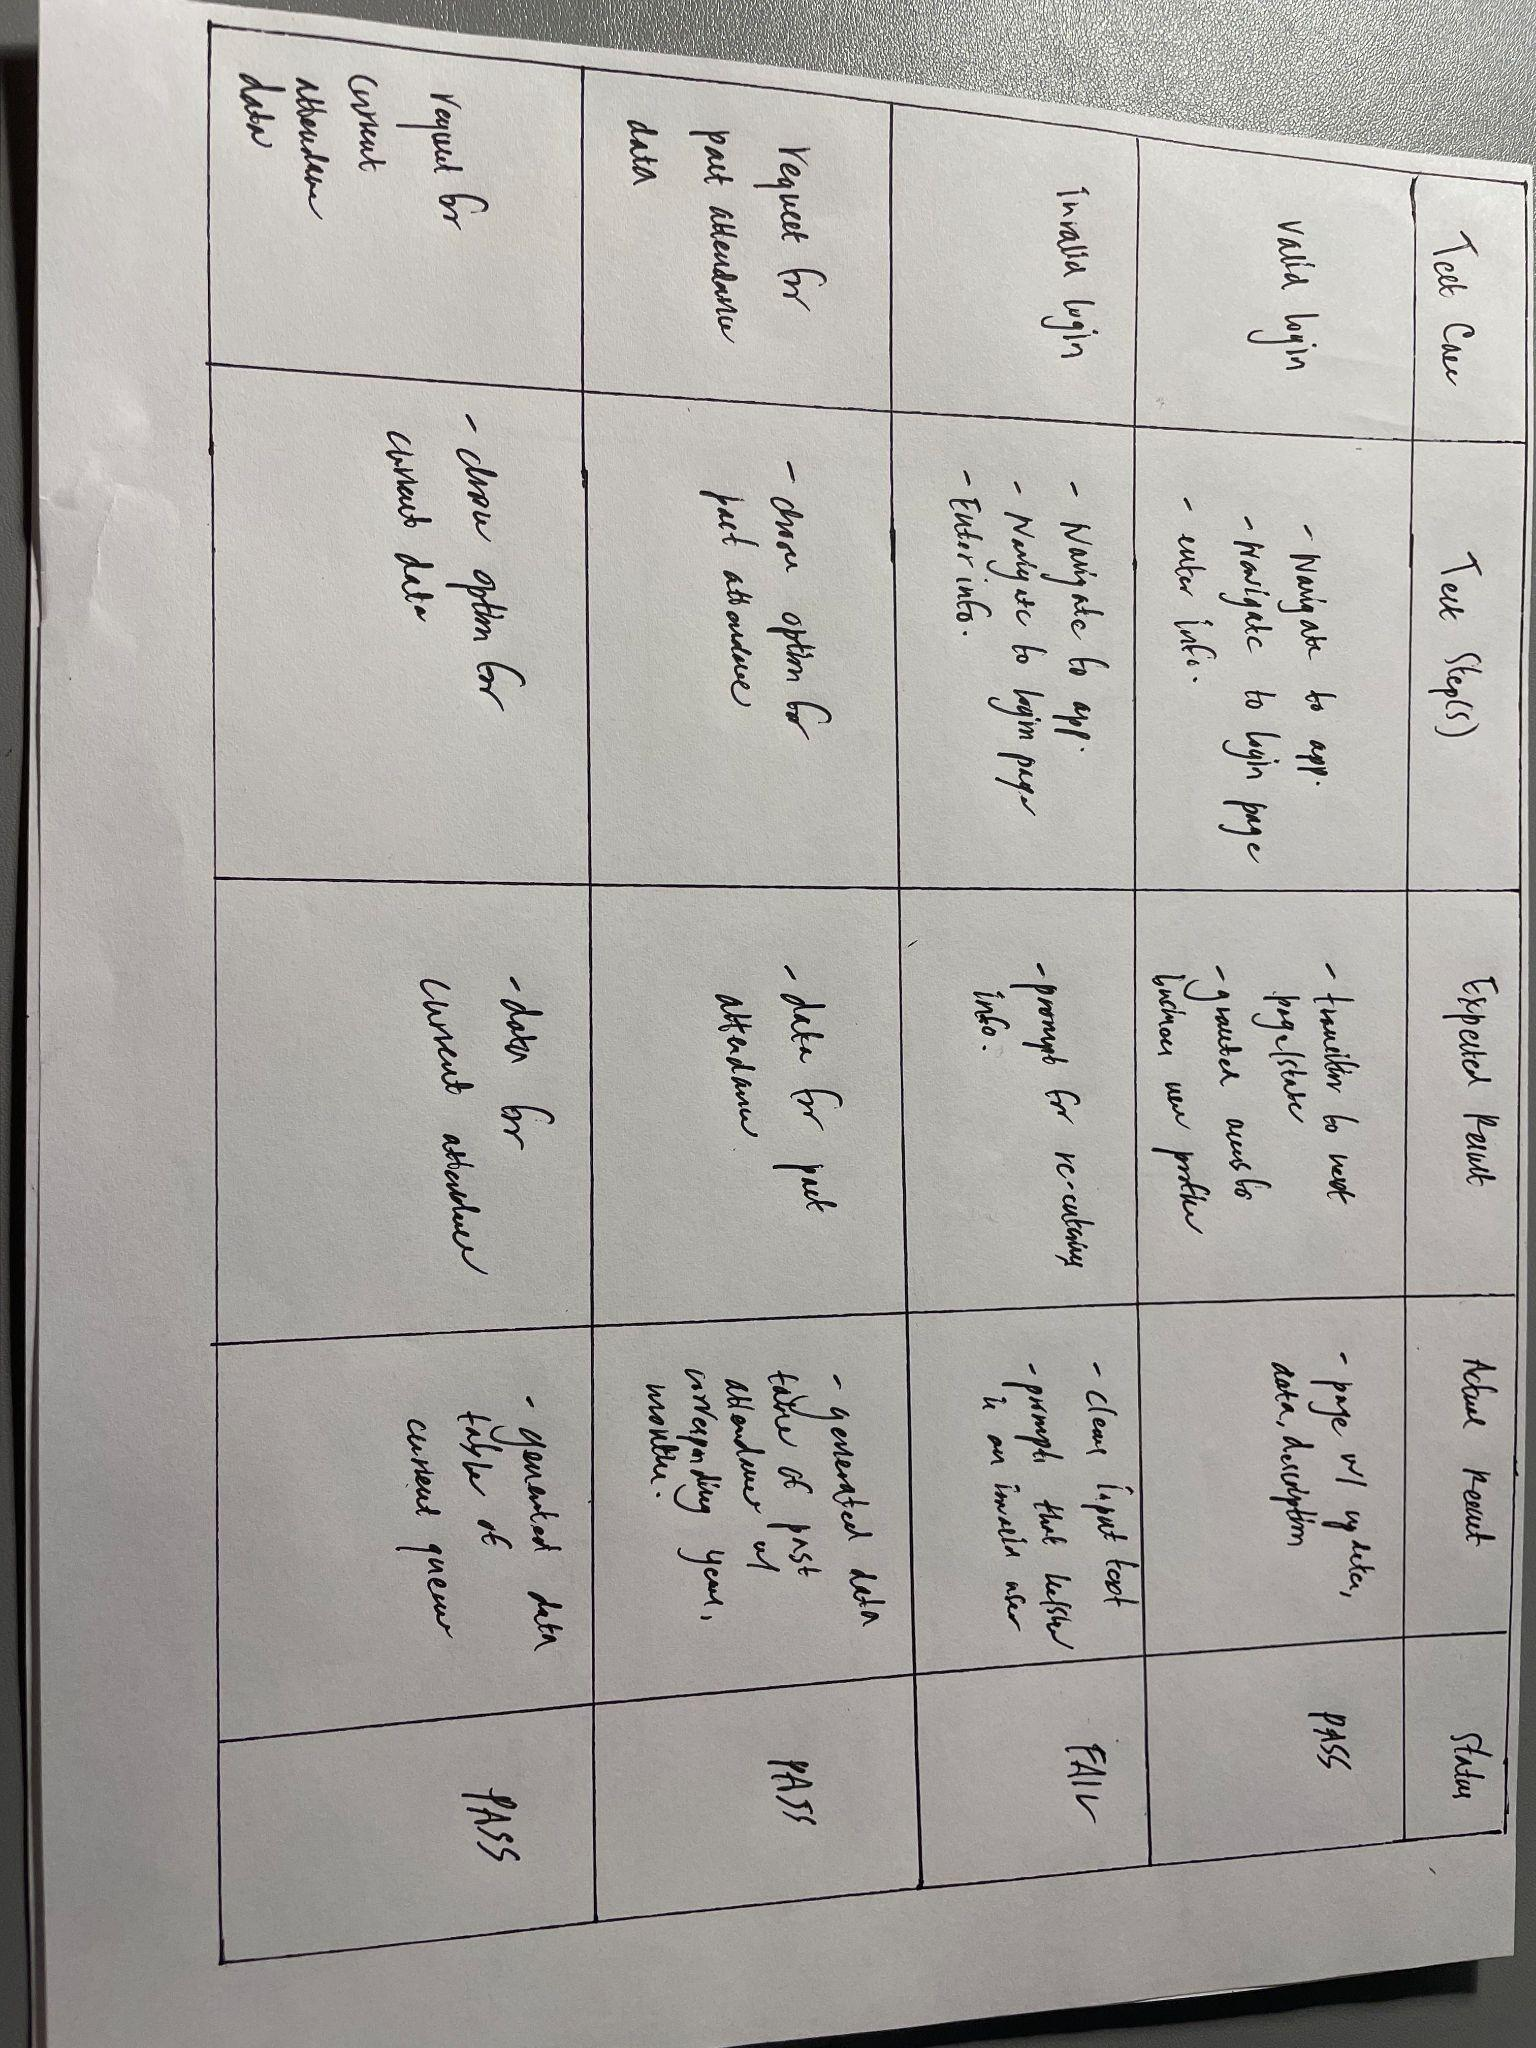 Test Case
Test Step(s)
Expected Result
Actual Result
Status
valid login
- Navigate to app.
- Navigate to login page
- enter info.
- transition to next
page/state
- granted access to
business user profile
- page w/ updates,
data, description
PASS
invalid login
- Navigate to app.
- Navigate to login page
- Enter info.
- prompt for re-entering
info.
- clears input text
- prompts that he/she
is an invalid user
FAIL
request for
past attendance
data
- choose option for
past attendance
- data for past
attendance
- generated data
table of past
attendance w/
corresponding years,
months.
PASS
request for
current
attendance
data
- choose option for
current data
- data for
current attendance
- generated data
table of
current queue
PASS